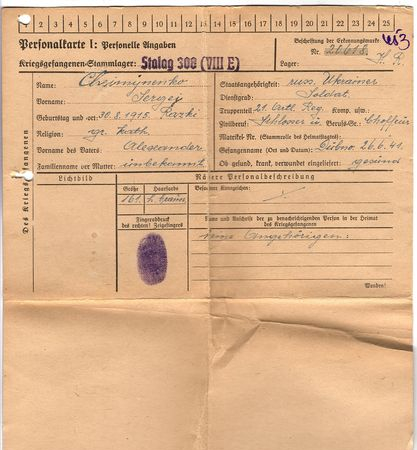 1 2 3 4 5 6 7 8 9 10 11 12 13 14 15 16 17 18 19 20 21 22 23 24 25
Personalkarte I: Personelle Angaben
Beschriftung der Erkennungsmarke
Nr. 21618
Kriegsgefangenen-Stammlager: Stalag 308 (VIII E)
Lager:
Des Kriegsgefangenen
Name:
Vorname: Sergej
Geburtstag und -ort: 30.8.1915
Religion: gr. kath.
Vorname des Vaters: Alexander
Familienname der Mutter: unbekannt
Staatsangehörigkeit: russ. Ukrainer
Dienstgrad: Soldat
Truppenteil: 21. Artl. Reg. Komp. usw.:
Zivilberuf: Schlosser u. Berufs-Gr.: Chofför
Matrikel-Nr. (Stammrolle des Heimatstaates):
Gefangennahme (Ort und Datum): Dubno 26.6.41
Ob gesund, krank, verwundet eingeliefert: gesund
Lichtbild
Nähere Personalbeschreibung
Größe
Haarfarbe
Besondere Kennzeichen:
161
Fingerabdruck
des rechten! Zeigefingers
Name und Anschrift der zu benachrichtigenden Person in der Heimat
des Kriegsgefangenen
keine Angehörigen.
Wenden!